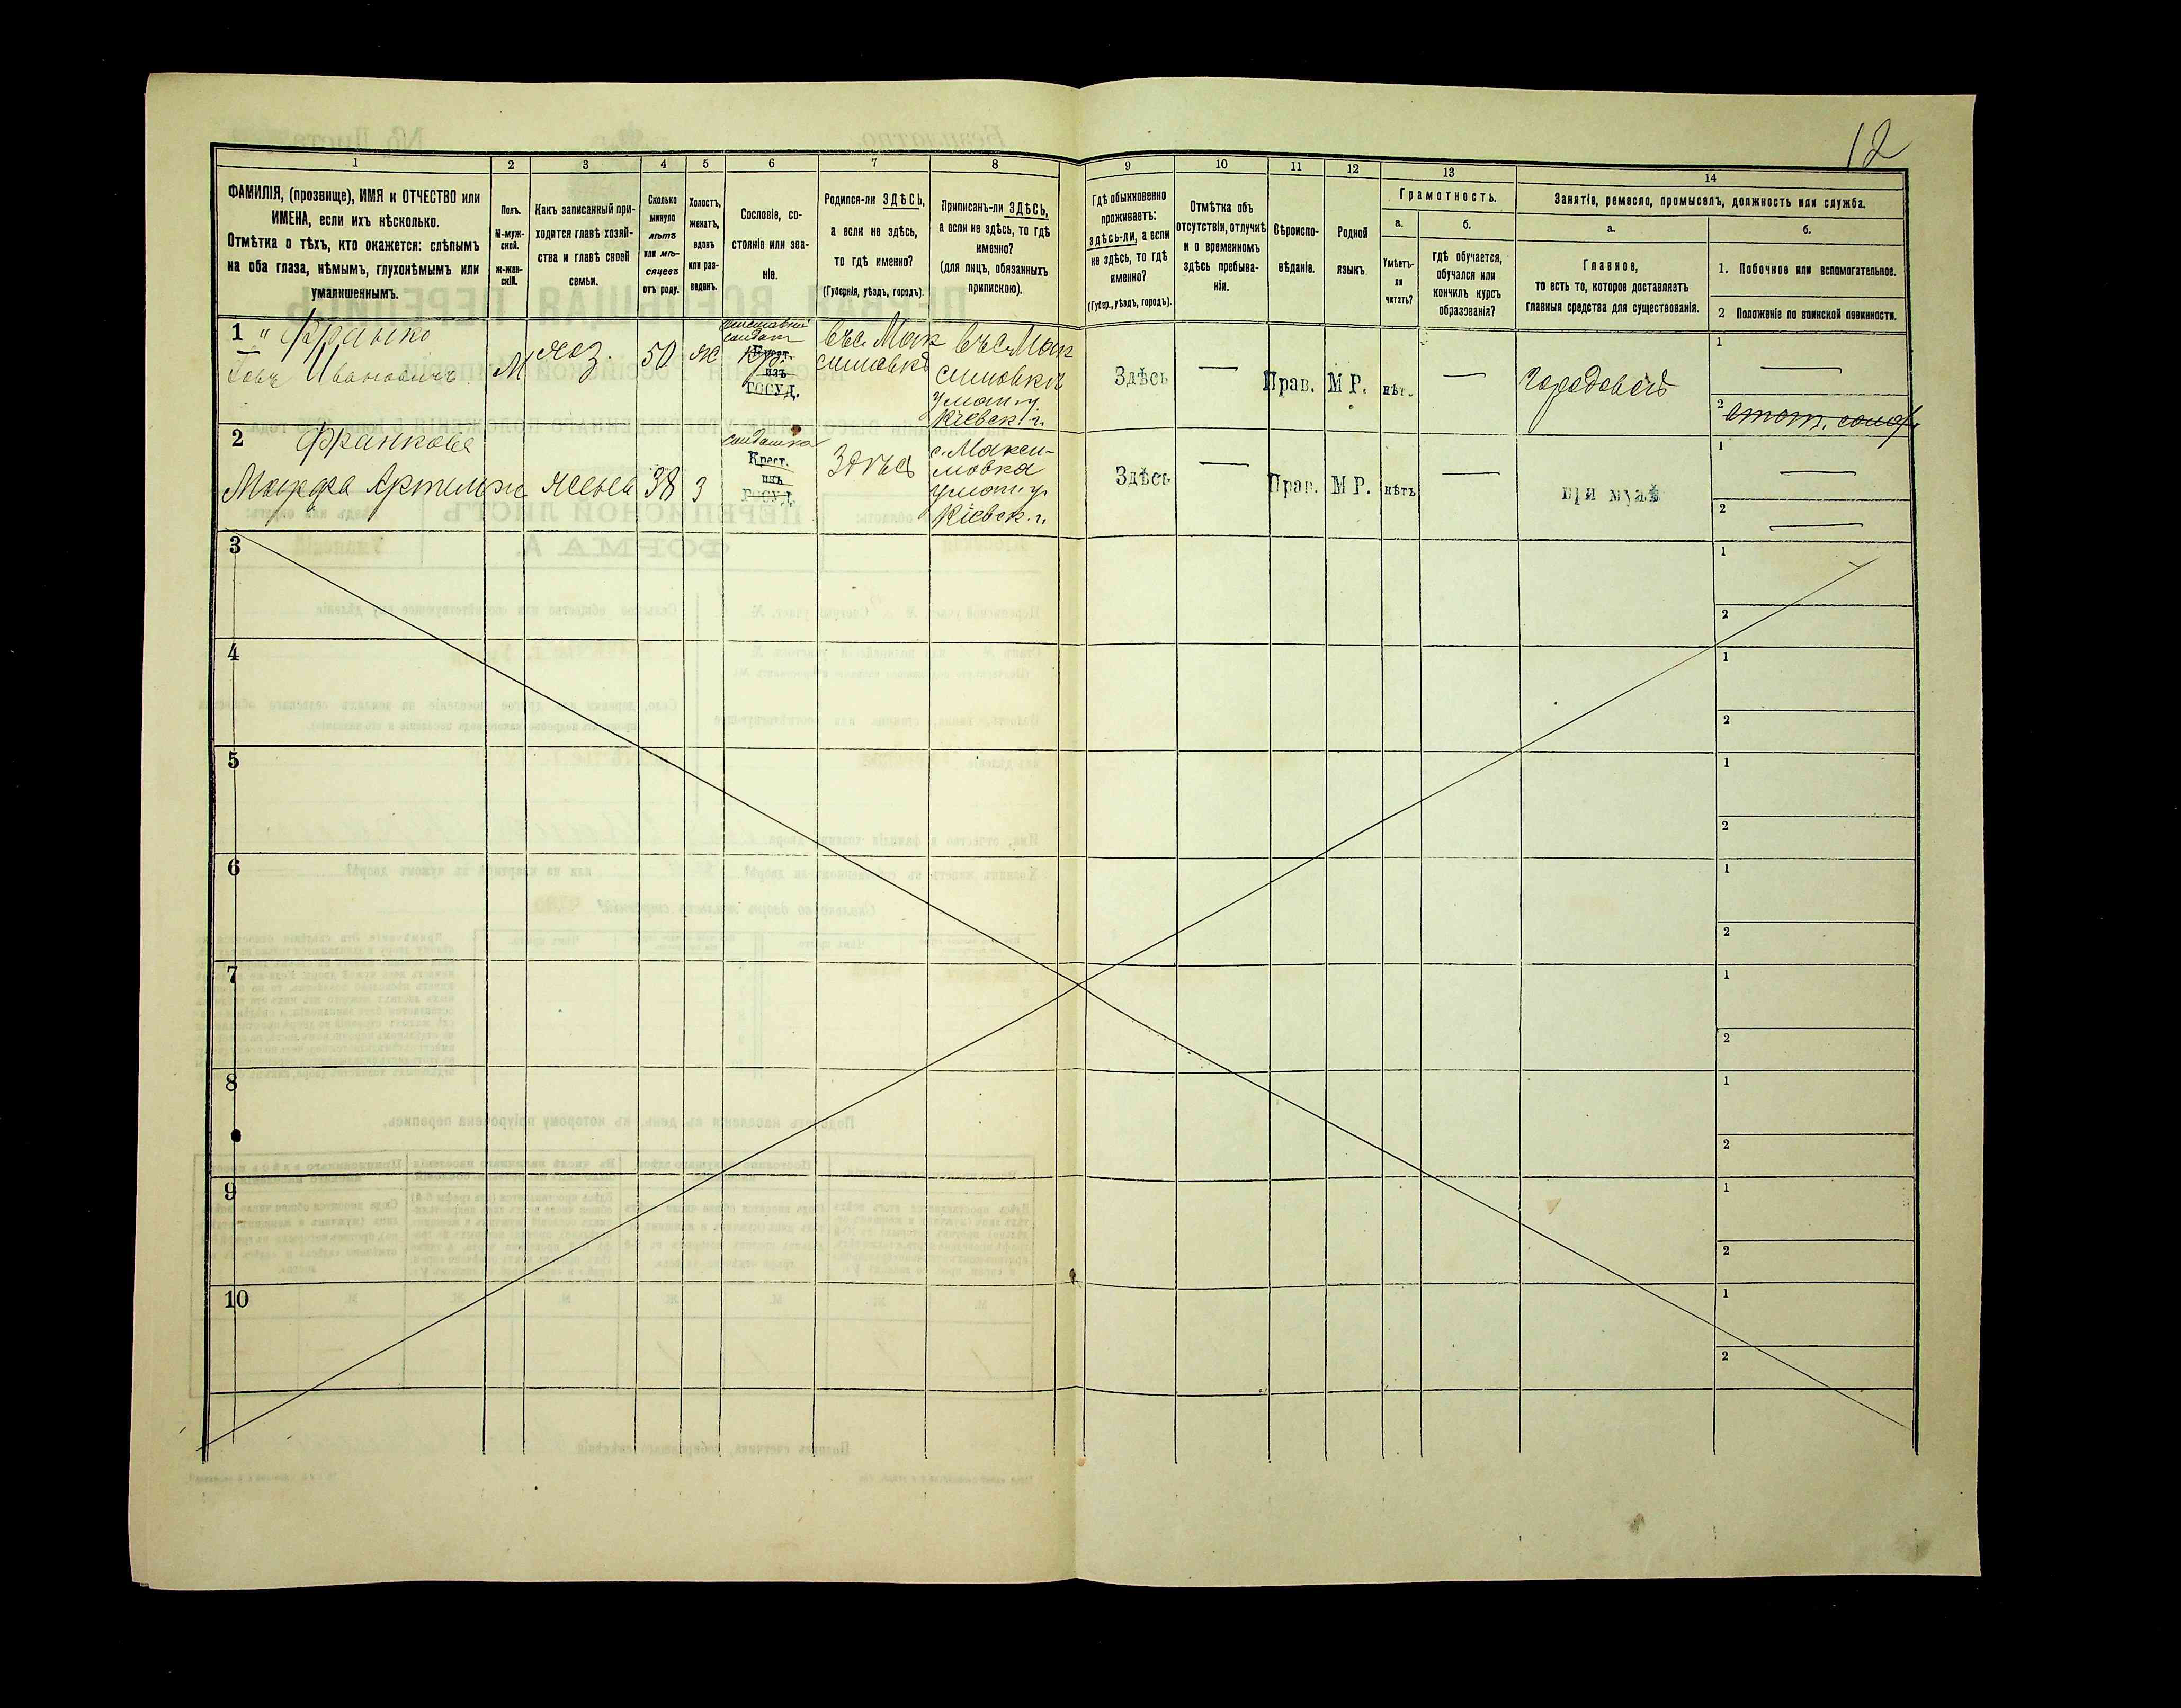 12
1 2 3 4 5 6 7 8 9 10 11 12 13 14
ФАМИЛІЯ, (прозвище), ИМЯ и ОТЧЕСТВО или
ИМЕНА, если ихъ нѣсколько.
Отмѣтка о тѣхъ, кто окажется: слѣпымъ
на оба глаза, нѣмымъ, глухонѣмымъ или
умалишеннымъ.
Полъ.
М-муж-
ской.
ж-жен-
скій.
Какъ записанный при-
ходится главѣ хозяй-
ства и главѣ своей
семьи.
Сколько
минуло
лѣтъ
или мѣ-
сяцевъ
отъ роду.
Холостъ,
женатъ,
вдовъ
или раз-
веденъ.
Сословіе, со-
стояніе или зва-
ніе.
Родился-ли ЗДѢСЬ,
а если не здѣсь,
то гдѣ именно?
(Губернія, уѣздъ, городъ)
Приписанъ-ли ЗДѢСЬ,
а если не здѣсь, то гдѣ
именно?
(для лицъ, обязанныхъ
припискою).
Гдѣ обыкновенно
проживаетъ:
здѣсь-ли, а если
не здѣсь, то гдѣ
именно?
(Губер., уѣздъ, городъ).
Отмѣтка объ
отсутствіи, отлучкѣ
и о временномъ
здѣсь пребыва-
ніи.
Вѣроиспо-
вѣданіе.
Родной
языкъ.
Грамотность.
а.
Умѣетъ-
ли
читать?
б.
гдѣ обучается,
обучался или
кончилъ курсъ
образованія?
Занятіе, ремесло, промыселъ, должность или служба.
а.
Главное,
то есть то, которое доставляетъ
главныя средства для существованія.
б.
1. Побочное или вспомогательное.
2 Положеніе по воинской повинности.
1 " Франко
Ивановичъ
М
хоз.
50
ж
солдат
Крест.
изъ
ГОСУД.
въ с. Мак
симовкѣ
въ с. Мак
симовкѣ
уман. у.
Кіевск. г.
Здѣсь
—
Прав.
М Р.
нѣт.
—
Городовой
1 —
2
2 Франкова
Марфа
жена
38
з
солдатка
Крест.
изъ
ГОСУД.
Здѣсь
с. Макси-
мовка
уман. у.
Кіевск. г.
Здѣсь
—
Прав.
М Р.
нѣтъ
—
при мужѣ
1 —
2 —
3 1
2
4 1
2
5 1
2
6 1
2
7 1
2
8 1
2
9 1
2
10 1
2